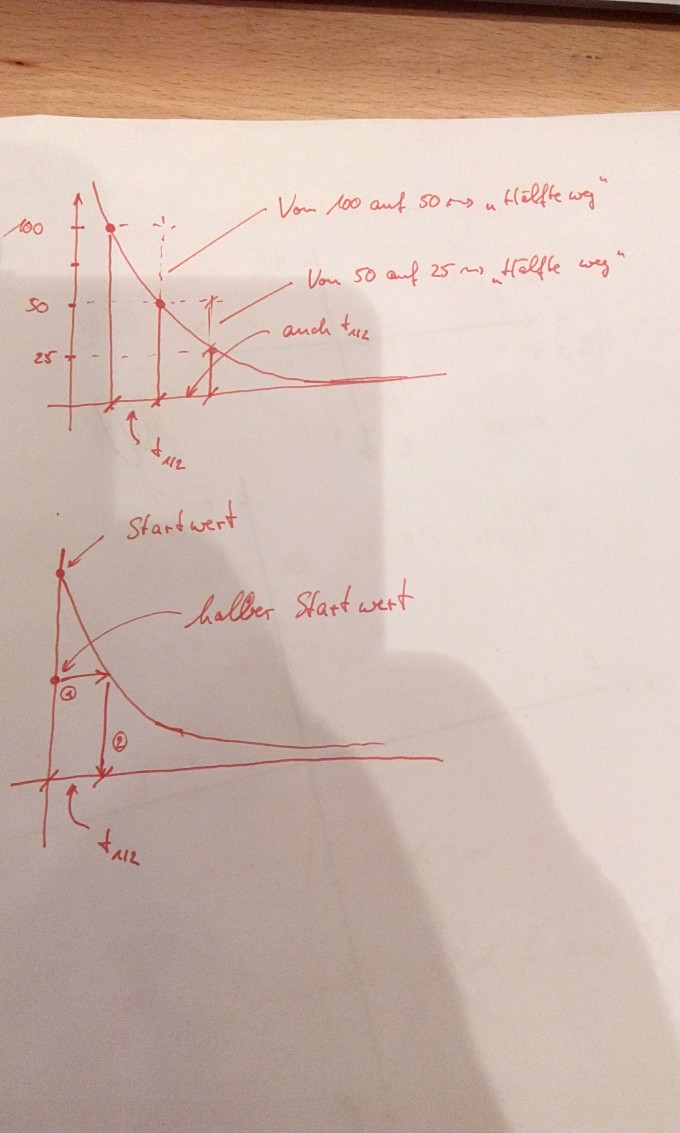 100
Von 100 auf 50 ⇝ „Hälfte weg“
Von 50 auf 25 ⇝ „Hälfte weg“
50
auch t1/2
25
t1/2
Startwert
halber Startwert
①
②
t1/2